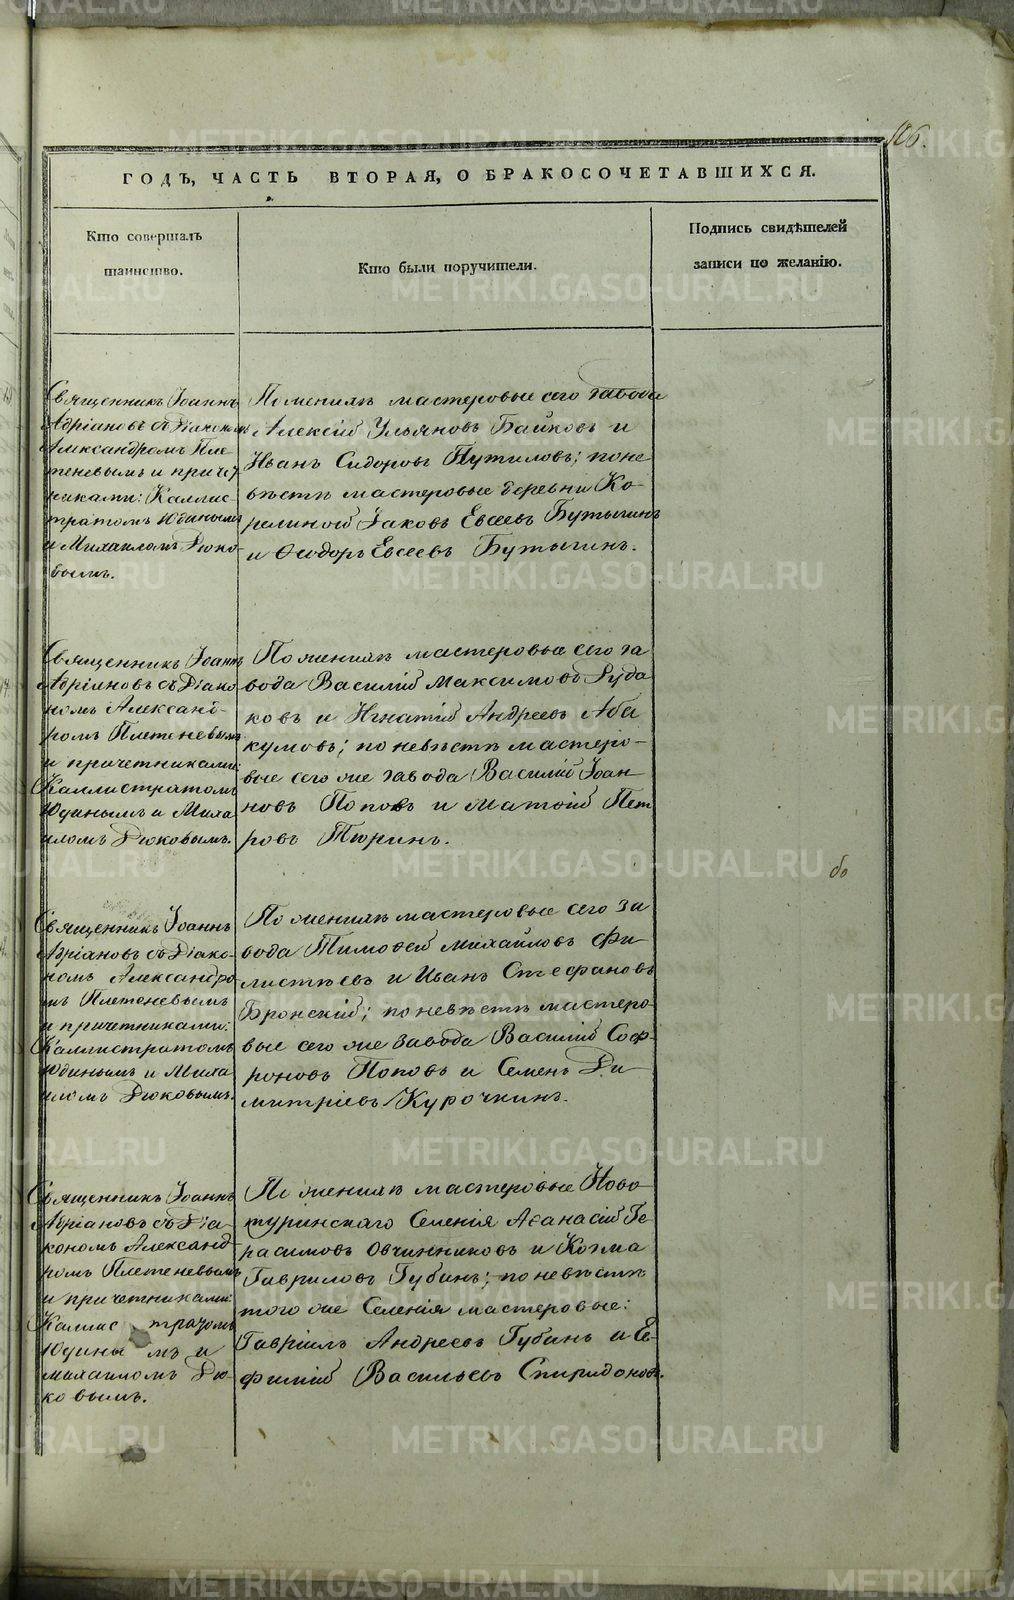 106.
ГОДЪ, ЧАСТЬ ВТОРАЯ, О БРАКОСОЧЕТАВШИХСЯ.
Кто совершалъ
таинство.
Кто были поручители.
Подпись свидѣтелей
записи по желанію.
Священникъ Іоаннъ
Адріановъ съ Діакономъ
Александромъ Пле-
теневымъ и причет
никами: Каллис-
тратомъ Юдинымъ
и Михаиломъ Дюко-
вымъ.
По женихѣ мастеровые сего завода
Алексій Ульяновъ Байковъ и
Иванъ Сидоровъ Путиловъ; по не-
вѣстѣ мастеровые деревни Ко-
релиной Іаковъ Евсеевъ Бутыгинъ
и Ѳеодоръ Евсеевъ Бутыгинъ.
Священникъ Іоаннъ
Адріановъ съ Діако
номъ Александ-
ромъ Плетеневымъ
и причетниками:
Каллистратомъ
Юдинымъ и Миха
иломъ Дюковымъ.
По женихѣ мастеровые сего за
вода Василій Максимовъ Руда
ковъ и Игнатій Андреевъ Аба
кумовъ; по невѣстѣ мастеро-
вые сего же завода Василій Іоан-
новъ Поповъ и Матѳій Пет
ровъ Тюринъ.
бо
Священникъ Іоаннъ
Адріановъ съ Діако-
номъ Александро
мъ Плетеневымъ
и причетниками:
Каллистратомъ
Юдинымъ и Миха
иломъ Дюковымъ.
По женихѣ мастеровые сего за
вода Тимоѳей Михайловъ Фи-
листѣевъ и Иванъ Стефановъ
Бронскій; по невѣстѣ мастеро-
вые сего же завода Василій Соф-
роновъ Поповъ и Семенъ Ди-
митріевъ Курочкинъ.
Священникъ Іоаннъ
Адріановъ съ Діа-
кономъ Александ-
ромъ Плетеневымъ
и причетниками:
Каллис тратомъ
Юдины мъ и
Михаиломъ Дю-
ковымъ.
По женихѣ мастеровые Ново-
туринскаго Селенія Аѳанасій Ге-
расимовъ Овчинниковъ и Козма
Гавриловъ Губинъ; по невѣстѣ
того же Селенія мастеровые:
Гавріилъ Андреевъ Губинъ и Е-
фимій Васильевъ Спиридоновъ.
METRIKI.GASO-URAL.RU